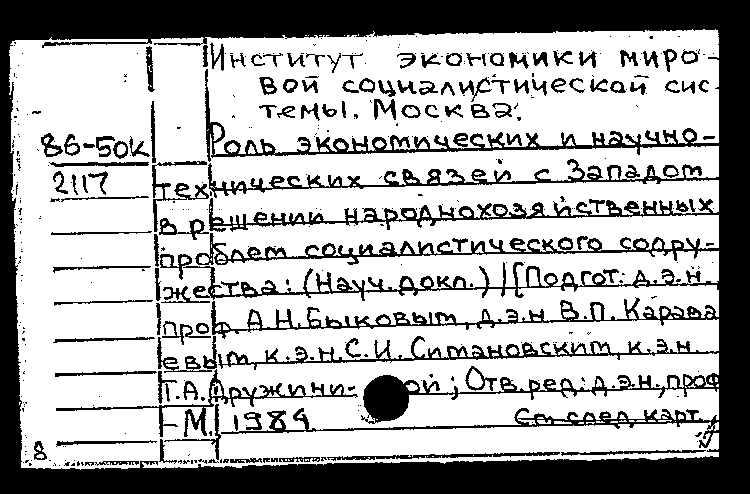 Институт экономики миро-
вой социалистической сис-
темы. Москва.
86-50к
Роль экономических и научно-
2117
технических связей с Западом
в решении народнохозяйственных
проблем социалистического содру-
жества: (Науч. докл.) / [Подгот: д.э.н.,
проф. А.Н.Быковым, д.э.н. В.П. Карава
евым, к.э.н. С.И. Симановским, к.э.н.
Т.А.Дружини- ной; Отв.ред: д.э.н., проф
- М., 1984
См след. карт.
8